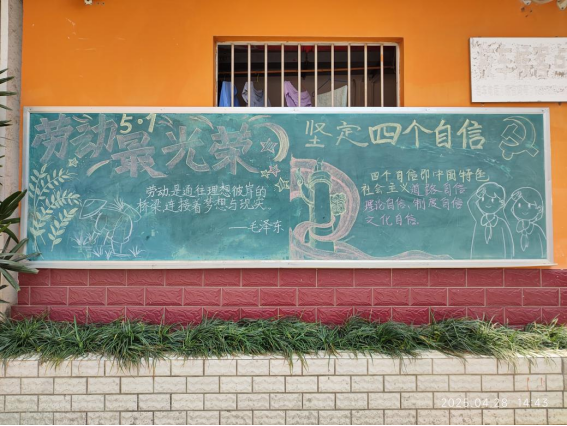 5.1
劳动最光荣
劳动是通往理想彼岸的
桥梁,连接着梦想与现实
——毛泽东
坚定四个自信
四个自信即中国特色
社会主义道路自信
理论自信,制度自信
文化自信
2025.04.28 14:43